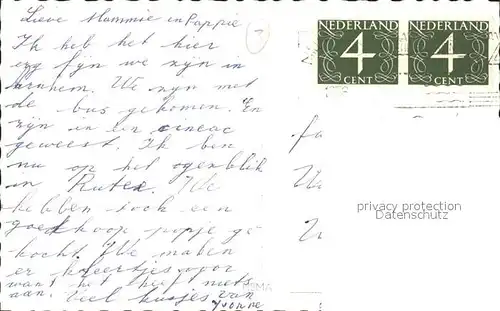 Lieve Mammie en Pappie
Ik heb het hier
erg fijn we zijn in
arnhem. We zijn met
de bus gekomen. En
zijn in een cineac
geweest. Ik ben
nu op het ogenblik
in Rutex. We
hebben ook een
goedkoop popje ge
kocht. We maken
er kleertjes voor
want het heef niets
aan. Veel kusjes van
Yvonne
NEDERLAND
4
CENT
NEDERLAND
4
CENT
privacy protection
Datenschutz